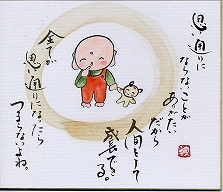 思い通りに
ならないことが
ありがたい
だから
人間として
成長できる。
全てが
思い通りになったら
つまらないよね。